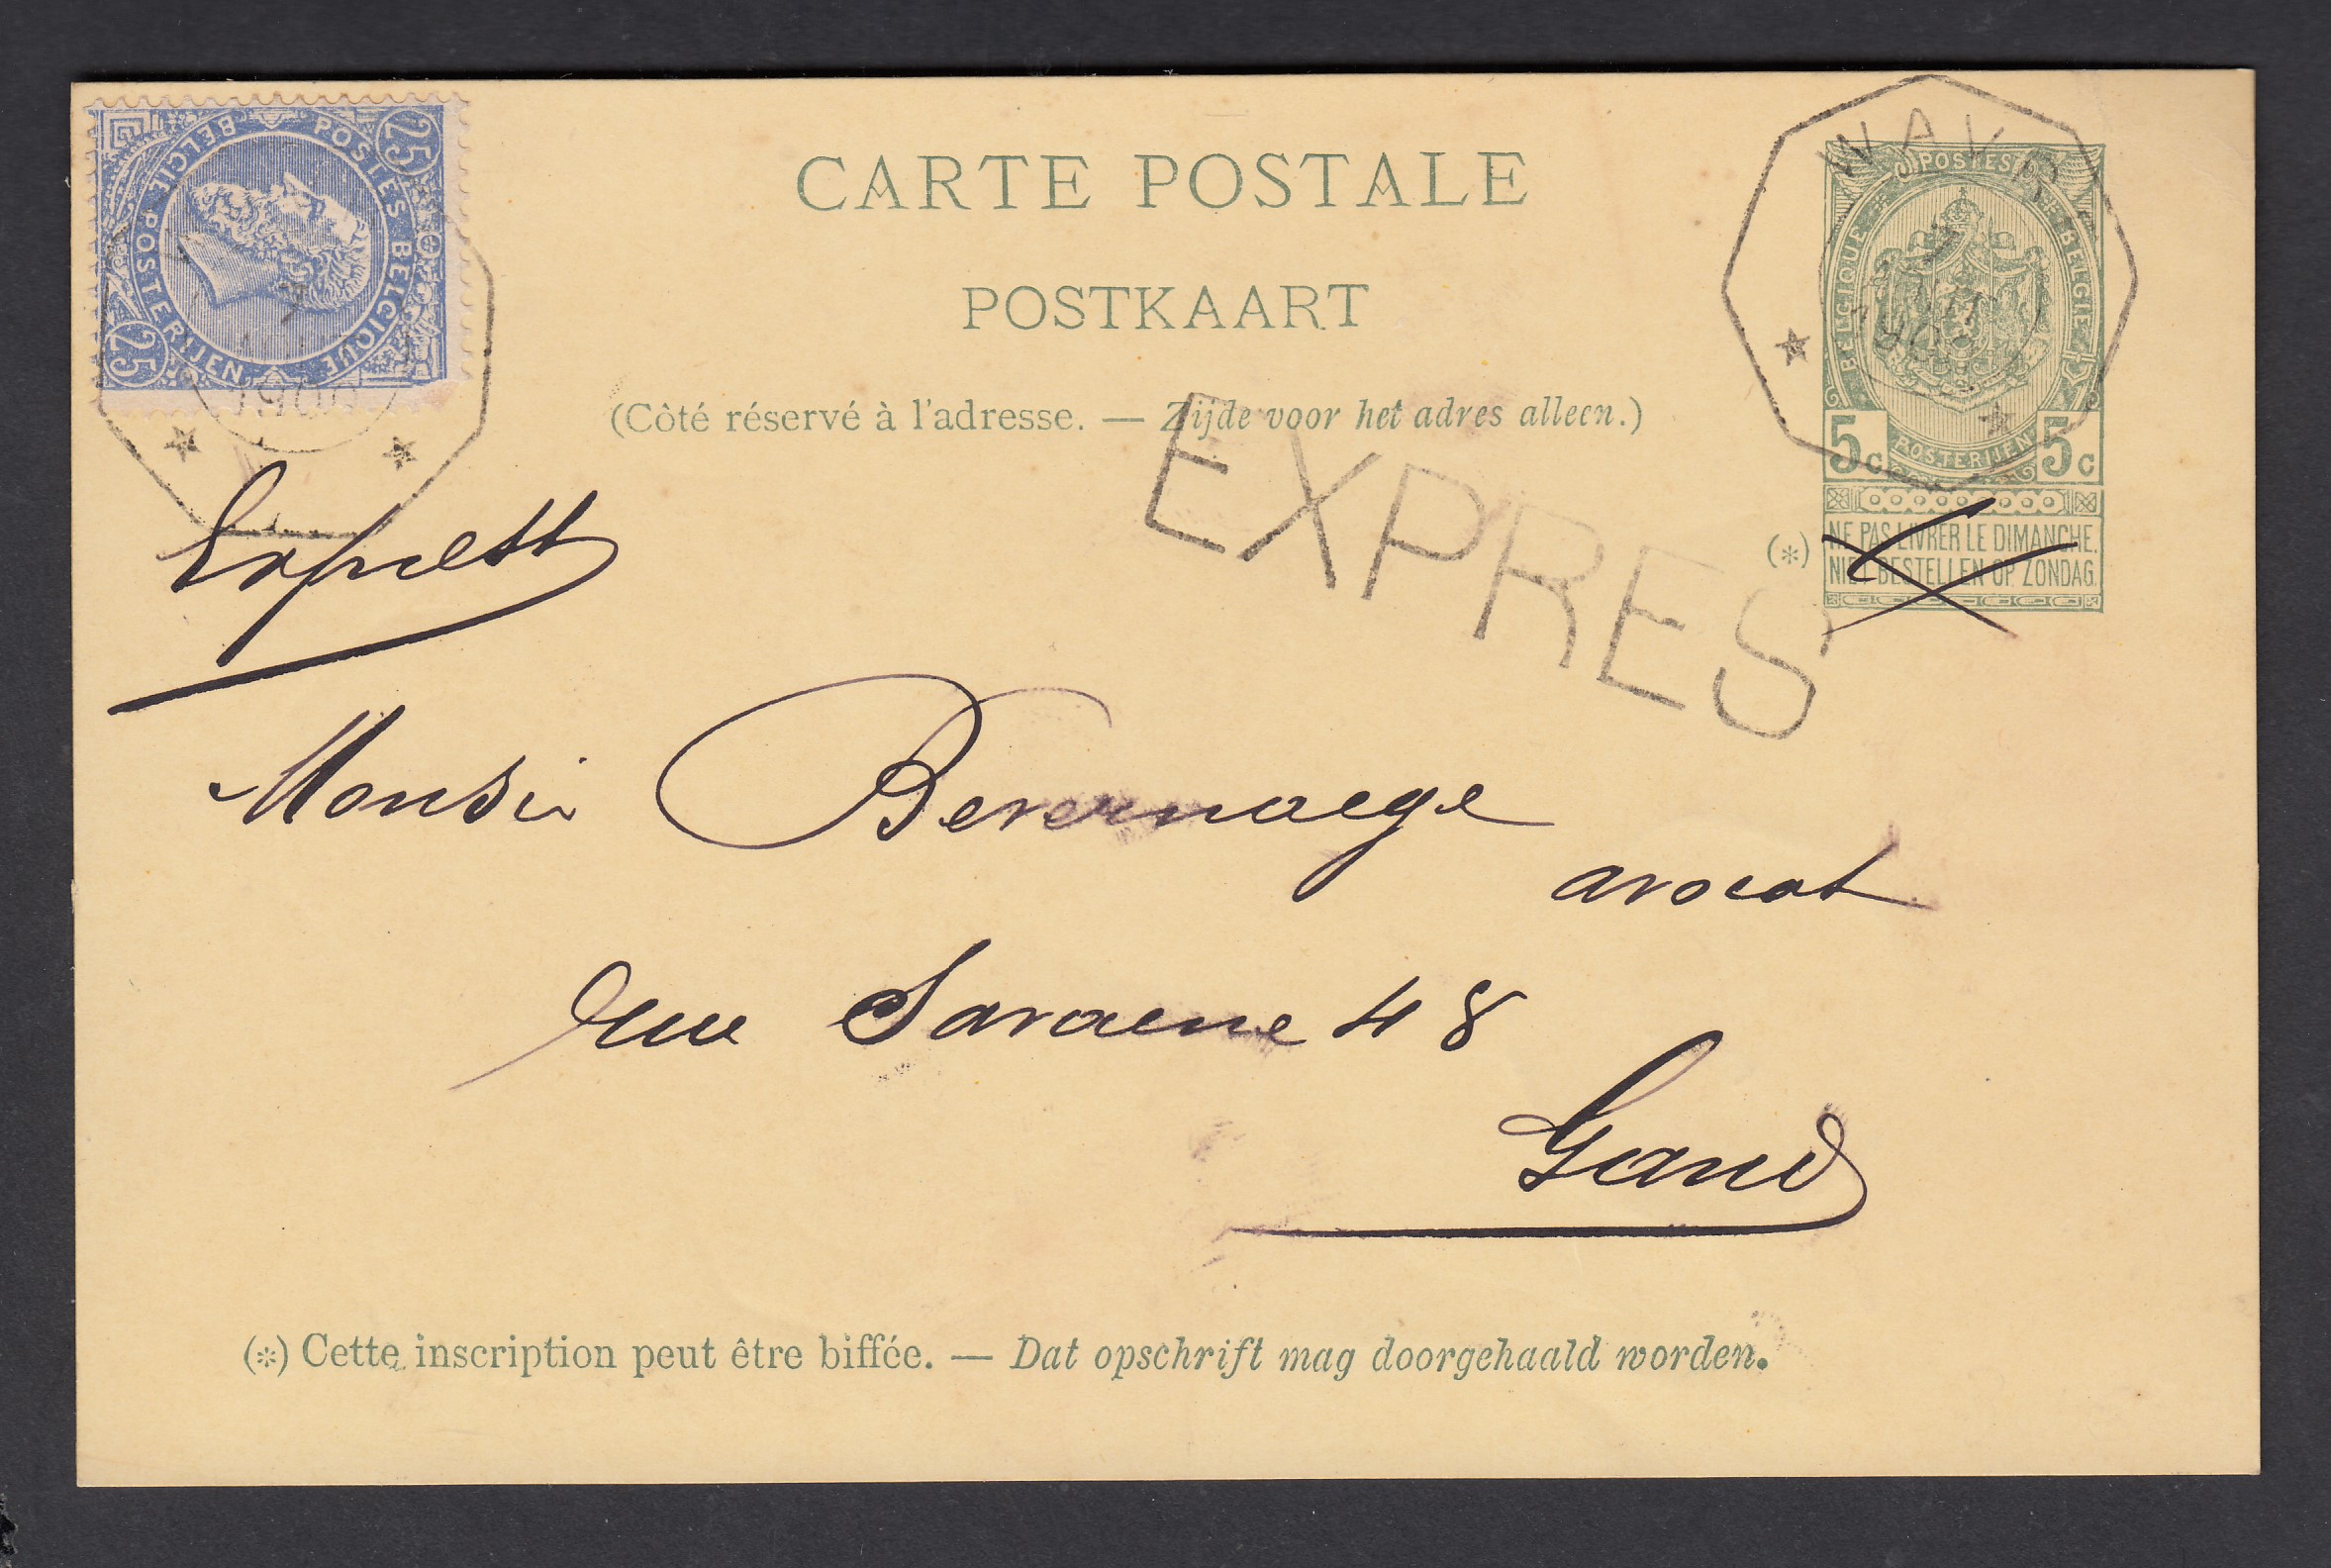 POSTES BELGIQUE
BELGIE POSTERIJEN
25 25
7
1900
CARTE POSTALE
POSTKAART
(Côté réservé à l'adresse. — Zijde voor het adres alleen.)
WAVR
7
AOUT
190
POSTES
BELGIQUE BELGIE
POSTERIJEN
5c 5c
(*) NE PAS LIVRER LE DIMANCHE.
NIET BESTELLEN OP ZONDAG.
EXPRES
Express
Monsir Bevernaege
avocat
rue Savaene 48
Gand
(*) Cette inscription peut être biffée. — Dat opschrift mag doorgehaald worden.